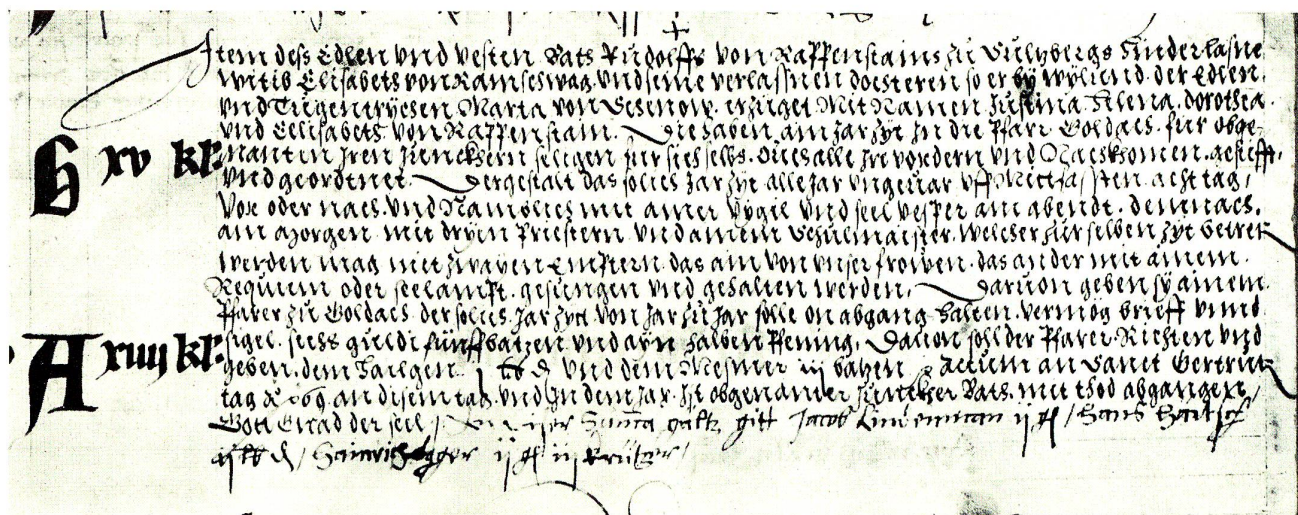 Item dess Edlen vnd vesten Bats Rudolffs von Rappenstains zu Sulzbergs hinderlasne
witib Elisabets von Ramschwag. vnd seine verlassnen doechteren so er by wylund. der Edlen.
vnd Tugentrychen Maria von erzüget Mit Namen Justina. Helena. dorothea.
vnd Elisabets von Rappenstain. Die haben ain Jar zyt Jn die Pfarr Goldach. für obge-
B xv kl: Nanten Jren Junckhern seligen für sich selbs. Ouch alle Jre vordern vnd Nachkhomen. gestifft,
vnd geordtnet. Dergestalt das solichs Jar zyt alle Jar vngeuar vff Mitfasten. acht tag,
Vor oder nach. vnd Namolich mit ainer vygil vnd seel vesper am abendt. demnach,
am Morgen mit dryen Priestern vnd ainem Schulmaister. welcher zur selben zyt
werden mag mit zwayen Empftern. das ain von vnser frowen. das ander mit ainem.
Requiem oder seelampt. gesungen vnd gehalten werden. Daruon geben sy ainem.
Pfarer zu Goldach. der solichs Jar zyt von Jar zu Jar solle on abgang halten. vermög brieff vnnd
A xiiij kl: sigel. sechs guldi fünff batzen vnd ain halben pfening. Dauon soll der Pfarer Richten vnd
geben. dem hailgen. j lb d vnd dem Mesmer iij batzen. Actum an Sanct Gertrut
tag an disem tag vnd Jn dem Jar. Jst obgenanter Junckher Bats. mit thod abgangen
Gott Gnad der seel / diser Summa gellt gitt Jacob Lindenman ij gl / Hans
lb d / Hainrich Egger ij gl iij krützer /